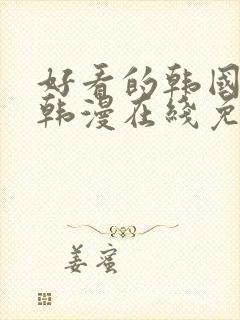 好看的韩国
韩漫在线免
姜蜜